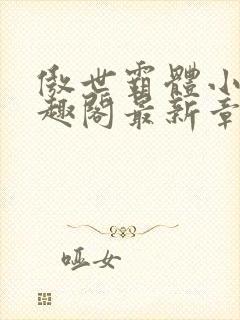 傲世霸體小
趣閣最新章
哑女